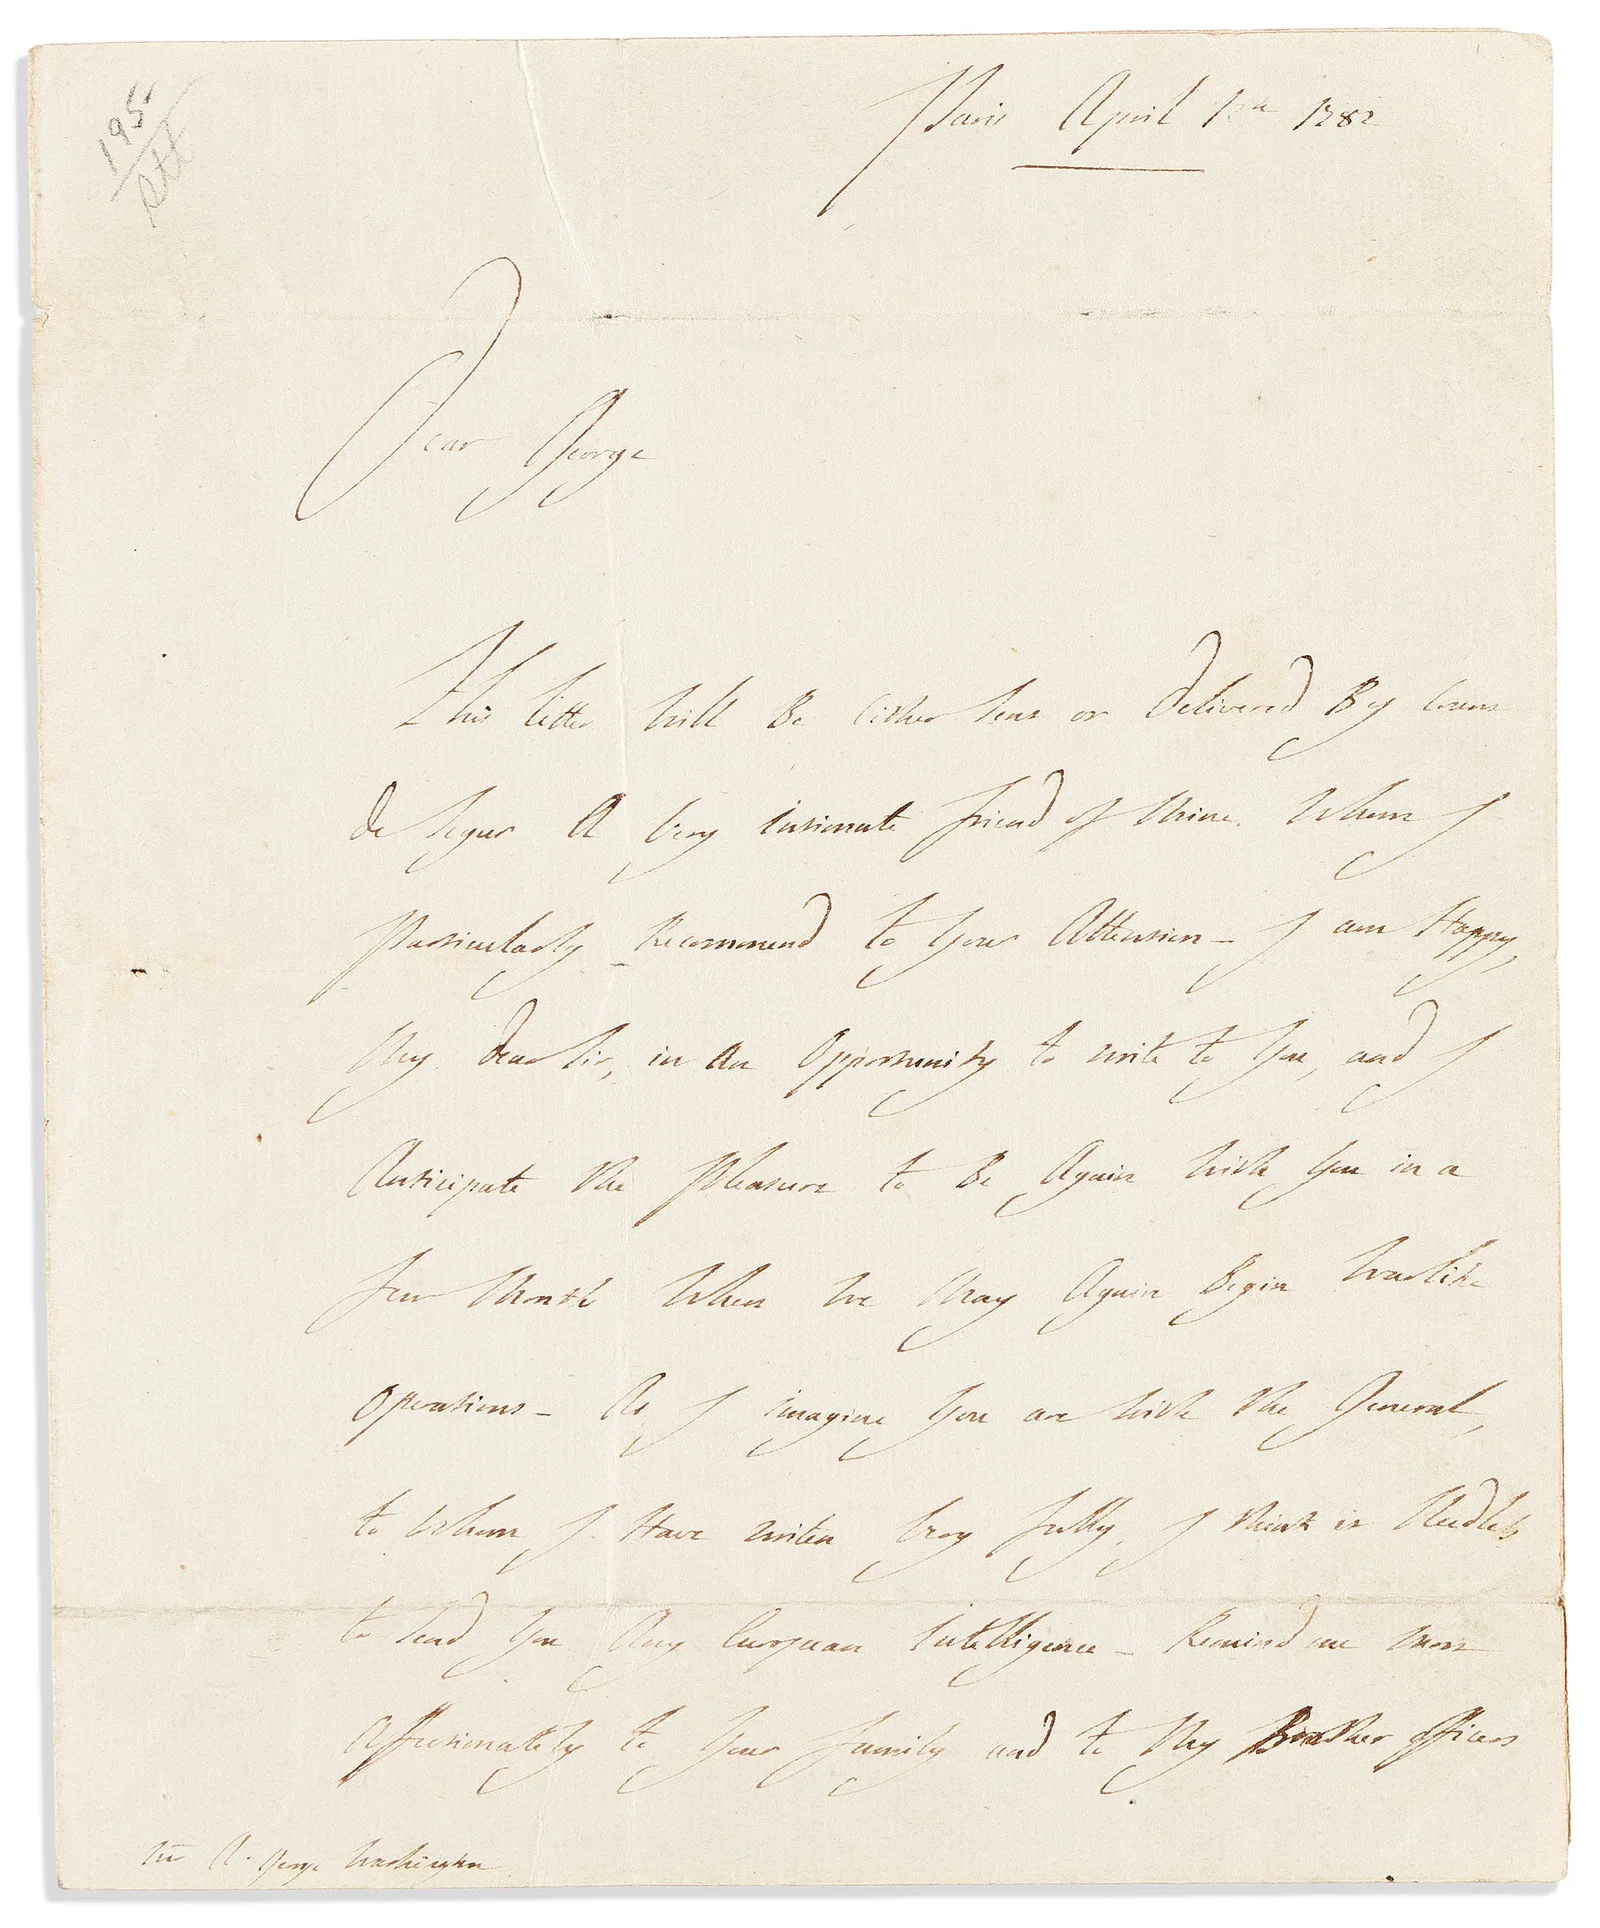 195
Paris April 12th 1782
Dear George
This letter will Be Either Sent or Delivered By Count
de Segur A very intimate friend of Mine. Whom I
Particularly Recommend to Your Attention – I am Happy,
My dear Sir, in An Opportunity to write to You, and I
Anticipate the Pleasure to Be Again With You in a
few Month When We May Again Begin Warlike
Operations – As I imagine You are With the General,
to Whom I Have writen Very fully, I think it Needless
to Send You Any European Intelligence – Remind me Most
Affectionately to Your family and to My Brother officers
George Washington